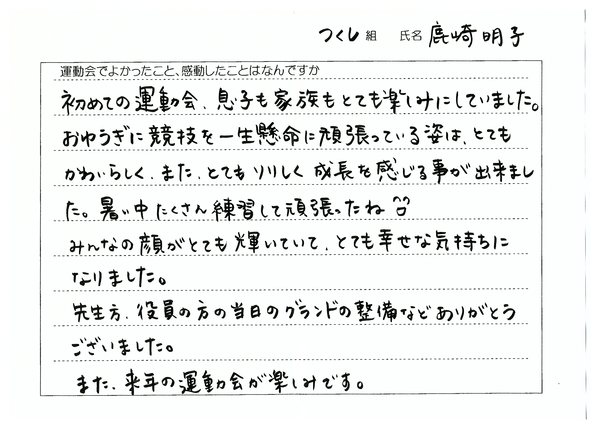 つくし 組 氏名 鹿崎明子
運動会でよかったこと、感動したことはなんですか
初めての運動会、息子も家族もとても楽しみにしていました。
おゆうぎに競技を一生懸命に頑張っている姿は、とても
かわいらしく、また、とてもりりしく成長を感じる事が出来まし
た。暑い中たくさん練習して頑張ったね
みんなの顔がとても輝いていて、とても幸せな気持ちに
なりました。
先生方、役員の方の当日のグランドの整備などありがとう
ございました。
また、来年の運動会が楽しみです。